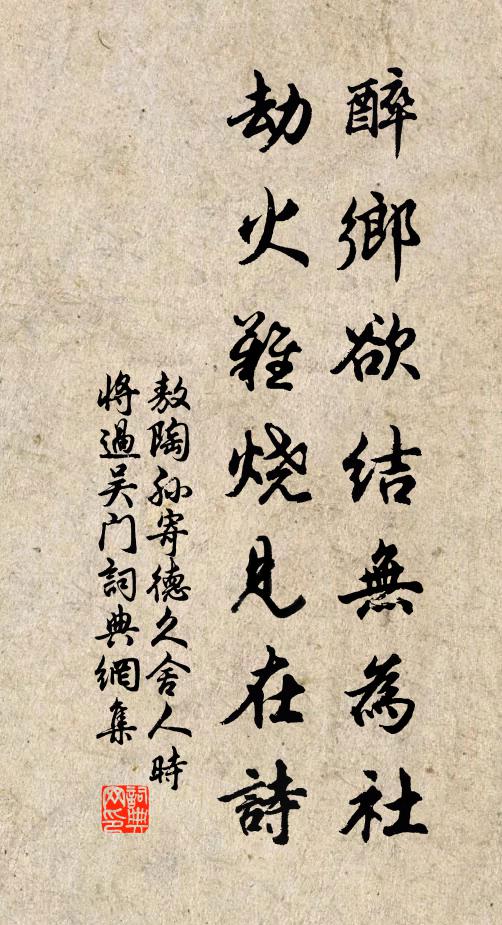 醉鄉欲結無為社
劫火難燒見在詩
敖陶孙寄德久舍人時
將過吴门詞典網集
詞典网印